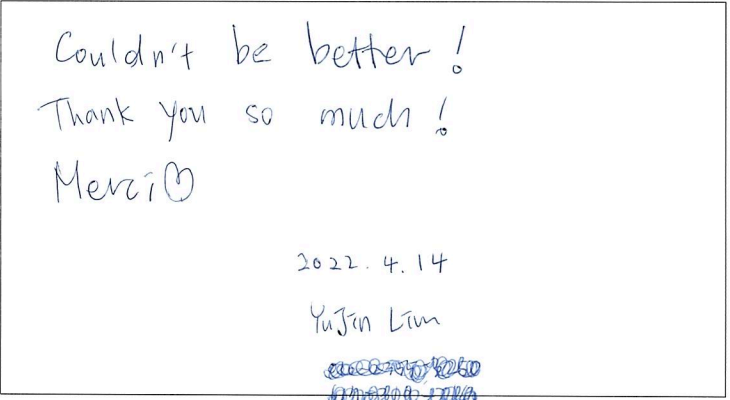 Couldn't be better!
Thank you so much!
Merci♡
2022. 4. 14
YuJin Lim